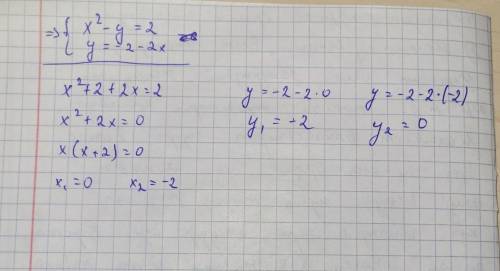 => { x² - y = 2
{ y = -2 - 2x
x² + 2 + 2x = 2
x² + 2x = 0
x(x+2) = 0
x₁ = 0 x₂ = -2
y = -2 - 2·0
y₁ = -2
y = -2 - 2·(-2)
y₂ = 0